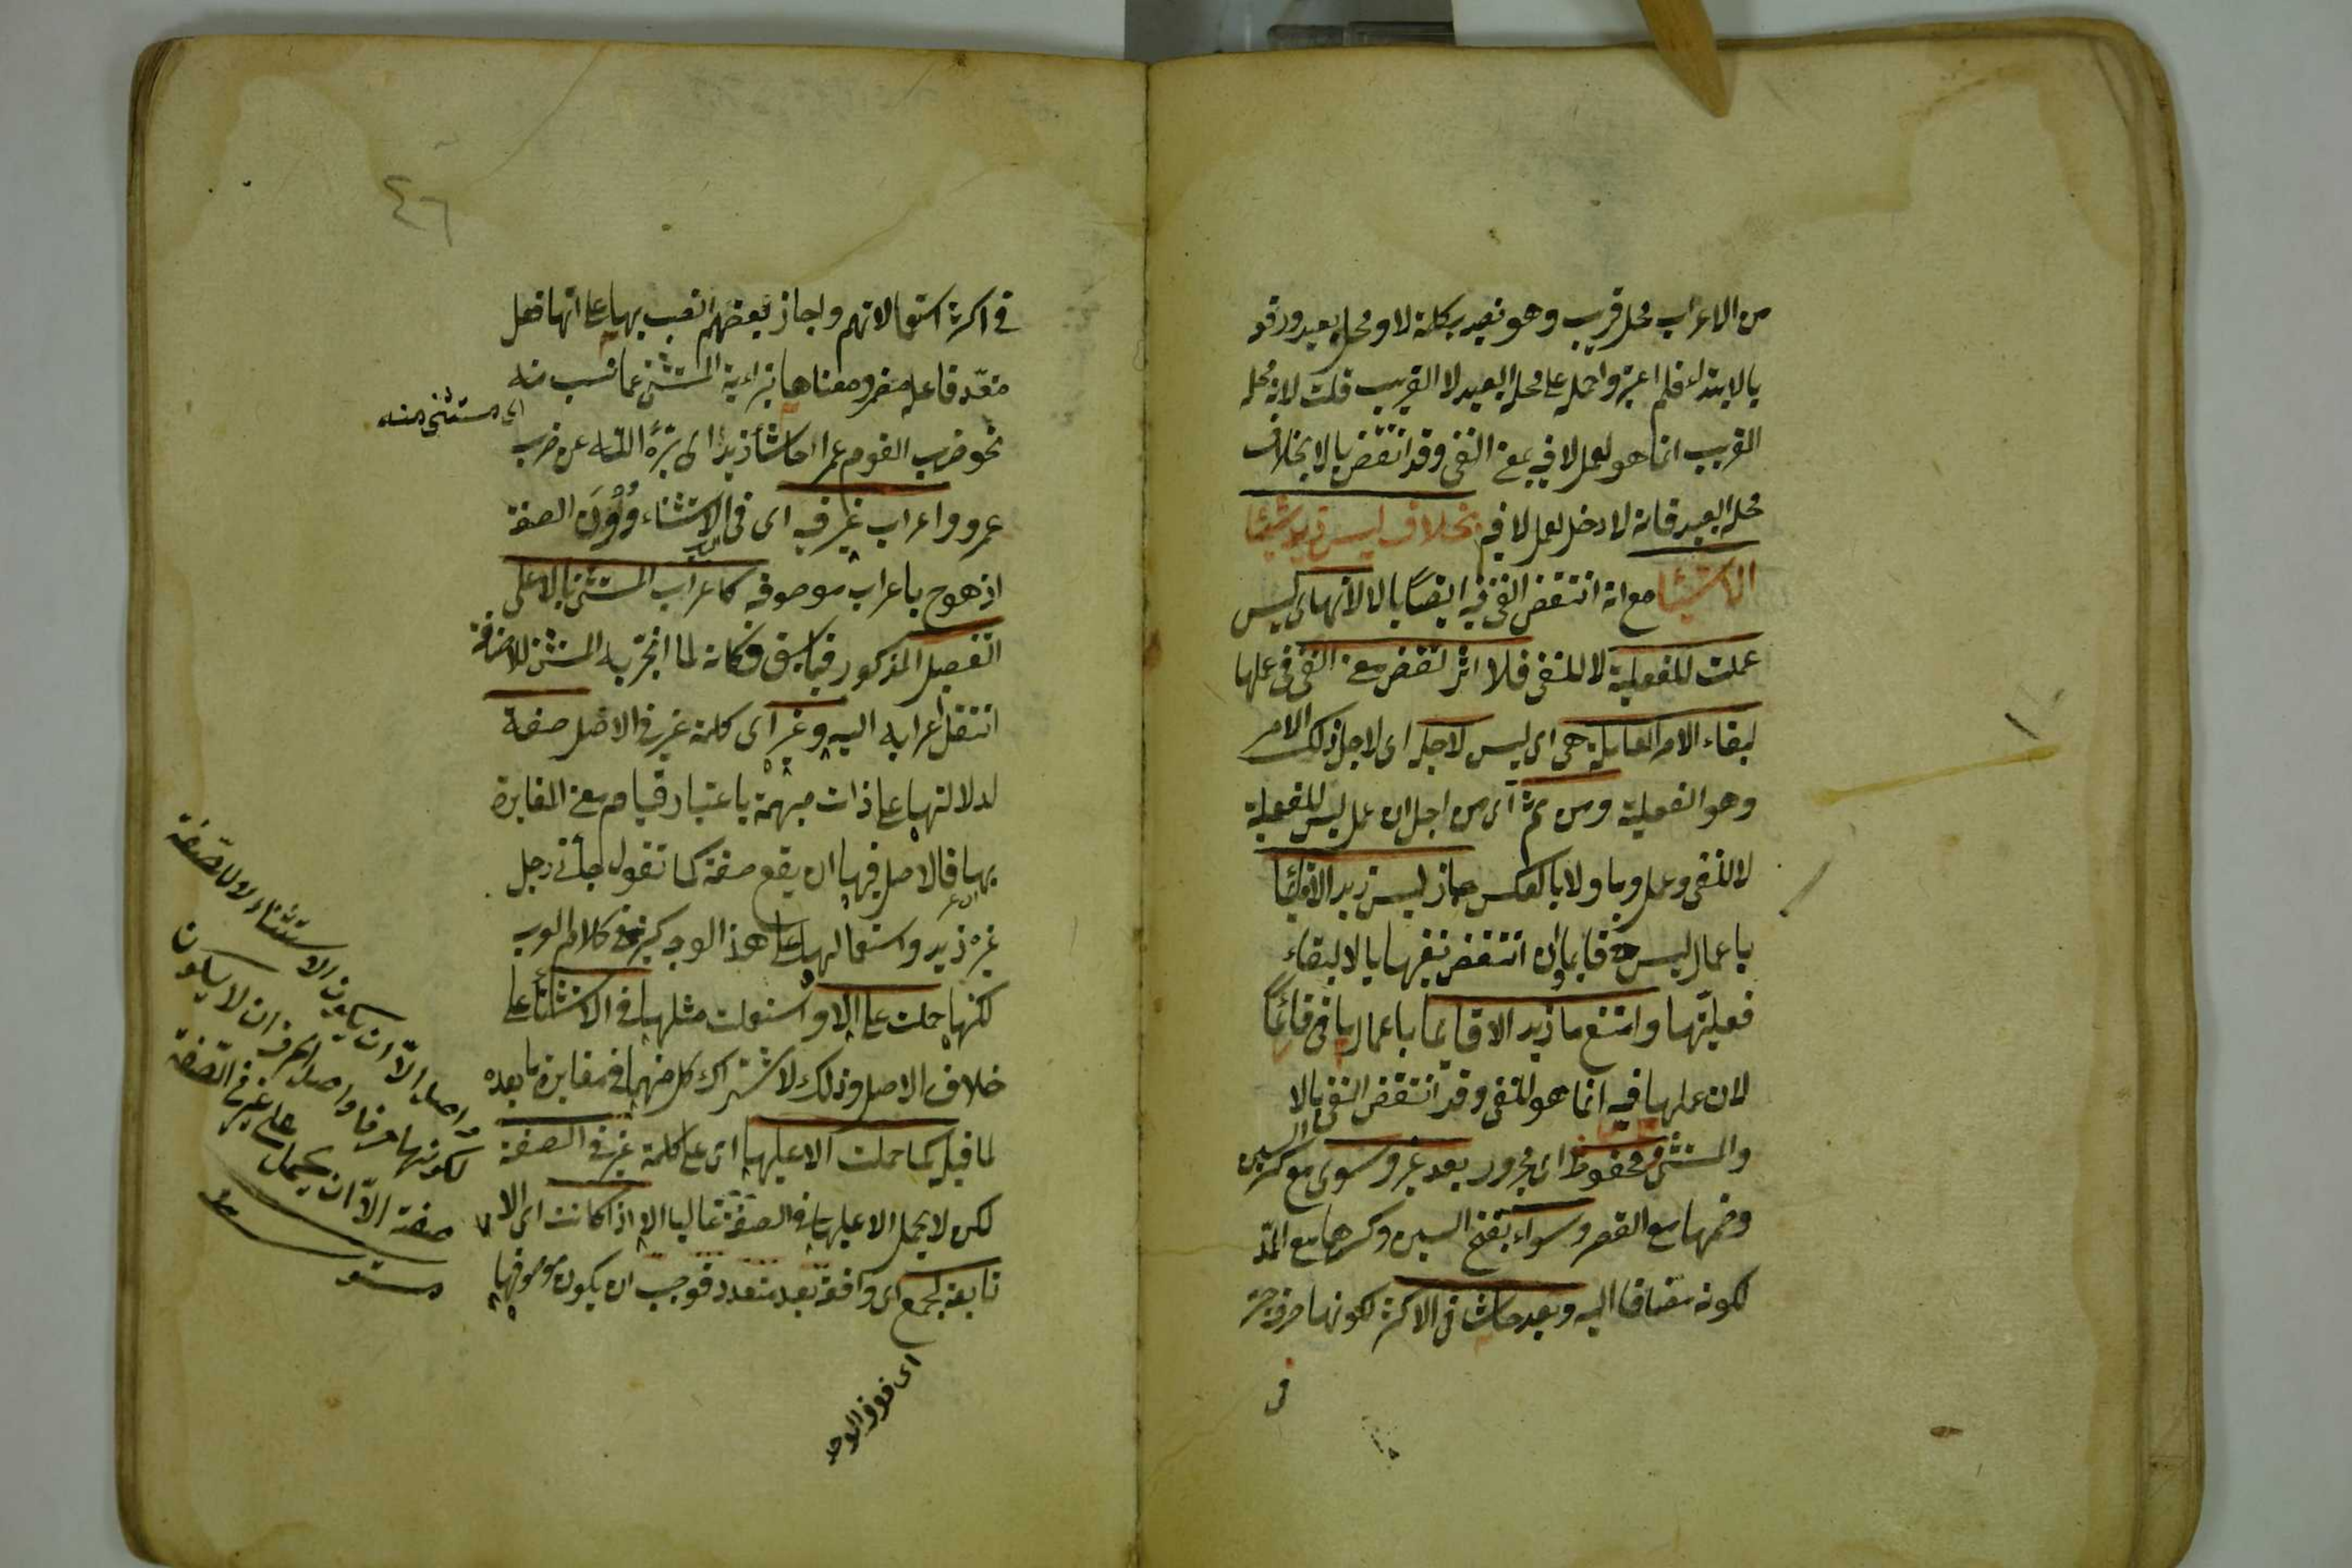 من الاعراب محل قريب وهو نصبه بكلمة لا ومحل بعيد ورفعه
بالابتداء فلم اعتبر واحمله على محله البعيد لا القريب قلت لان محله
القريب انما هو لعمل لا فيه بمعنى النفى وقد انتقض بالا بخلاف
محله البعيد فانه لا دخل لعمل لا فيه بخلاف ليس زيد شيئا
الا شيئا مع انه انتقض النفى فيه ايضًا بالا لانها اى ليس
عملت للفعلية لا للنفى فلا اثر لنقض معنى النفى فى عملها
لبقاء الامر العاملة هى اى ليس لاجله اى لاجل ذلك الامر
وهو الفعلية ومن ثم اى من اجل ان عمل ليس للفعلية
لا للنفى وعمل وما ولا بالعكس جاز ليس زيد الا قائما
باعمال ليس فى قائما وان انتقض نفيها بالا لبقاء
فعليتها وامتنع ما زيد الا قائما باعمال ما فى قائمًا
لان عملها فيه انما هو للنفى وقد انتقض النفى بالا
والمستثنى مخفوظ اى مجرور بعد غير وسوى مع كسر السين
وضمها مع القصر وسواء بفتح السين وكسرها مع المدّ
لكونه مضافا اليه وبعد حاشا فى الاكثر لكونها حرف جر
فى
٤٦
فى اكثر استعمالاتهم واجاز بعضهم النصب بها على انها فعل
متعدّ فاعله مضمر ومعناها تبراءية المستثنى عما نسب منه
اى مستثنى منه
نحو ضرب القوم عمرا حاشا زيدا اى برّءَ الله عن ضرب
عمرو واعراب غير فيه اى فى الاستثناء دُوْنَ الصفة
اذ هو ح باعراب موصوفه كاعراب المستثنى بالا على
التفصيل المذكور فيما سبق فكانه لما انجر به المستثنى للاضافة
انتقل اعرابه اليه وغير اى كلمة غير فى الاصل صفة
لدلالتها على ذات مبهمة باعتبار قيام معنى المغايرة
بها فالاصل فيها ان يقع صفة كما تقول جاءنى رجل
غير زيد واستعمالها على هذا الوجه كثير فى كلام العرب
لكنها حملت على الا واستعملت مثلها فى الاستثناء على
خلاف الاصل وذلك لاشتراك كل منهما فى مغايرة ما بعده
لما قبله كما حملت الا عليها اى على كلمة غير فى الصفة
لكن لا يحمل الا عليها فى الصفة غالبا الا اذا كانت اى الا
تابعة لجمع اى واقعة بعد متعدد فوجب ان يكون موصوفها
اى فوق الواحد
واصل الّا ان يكون الاستثناء لا للصفة
لكونها حرفا واصل الحرف ان لا يكون
صفة الّا ان يحمل على غير فى الصفة